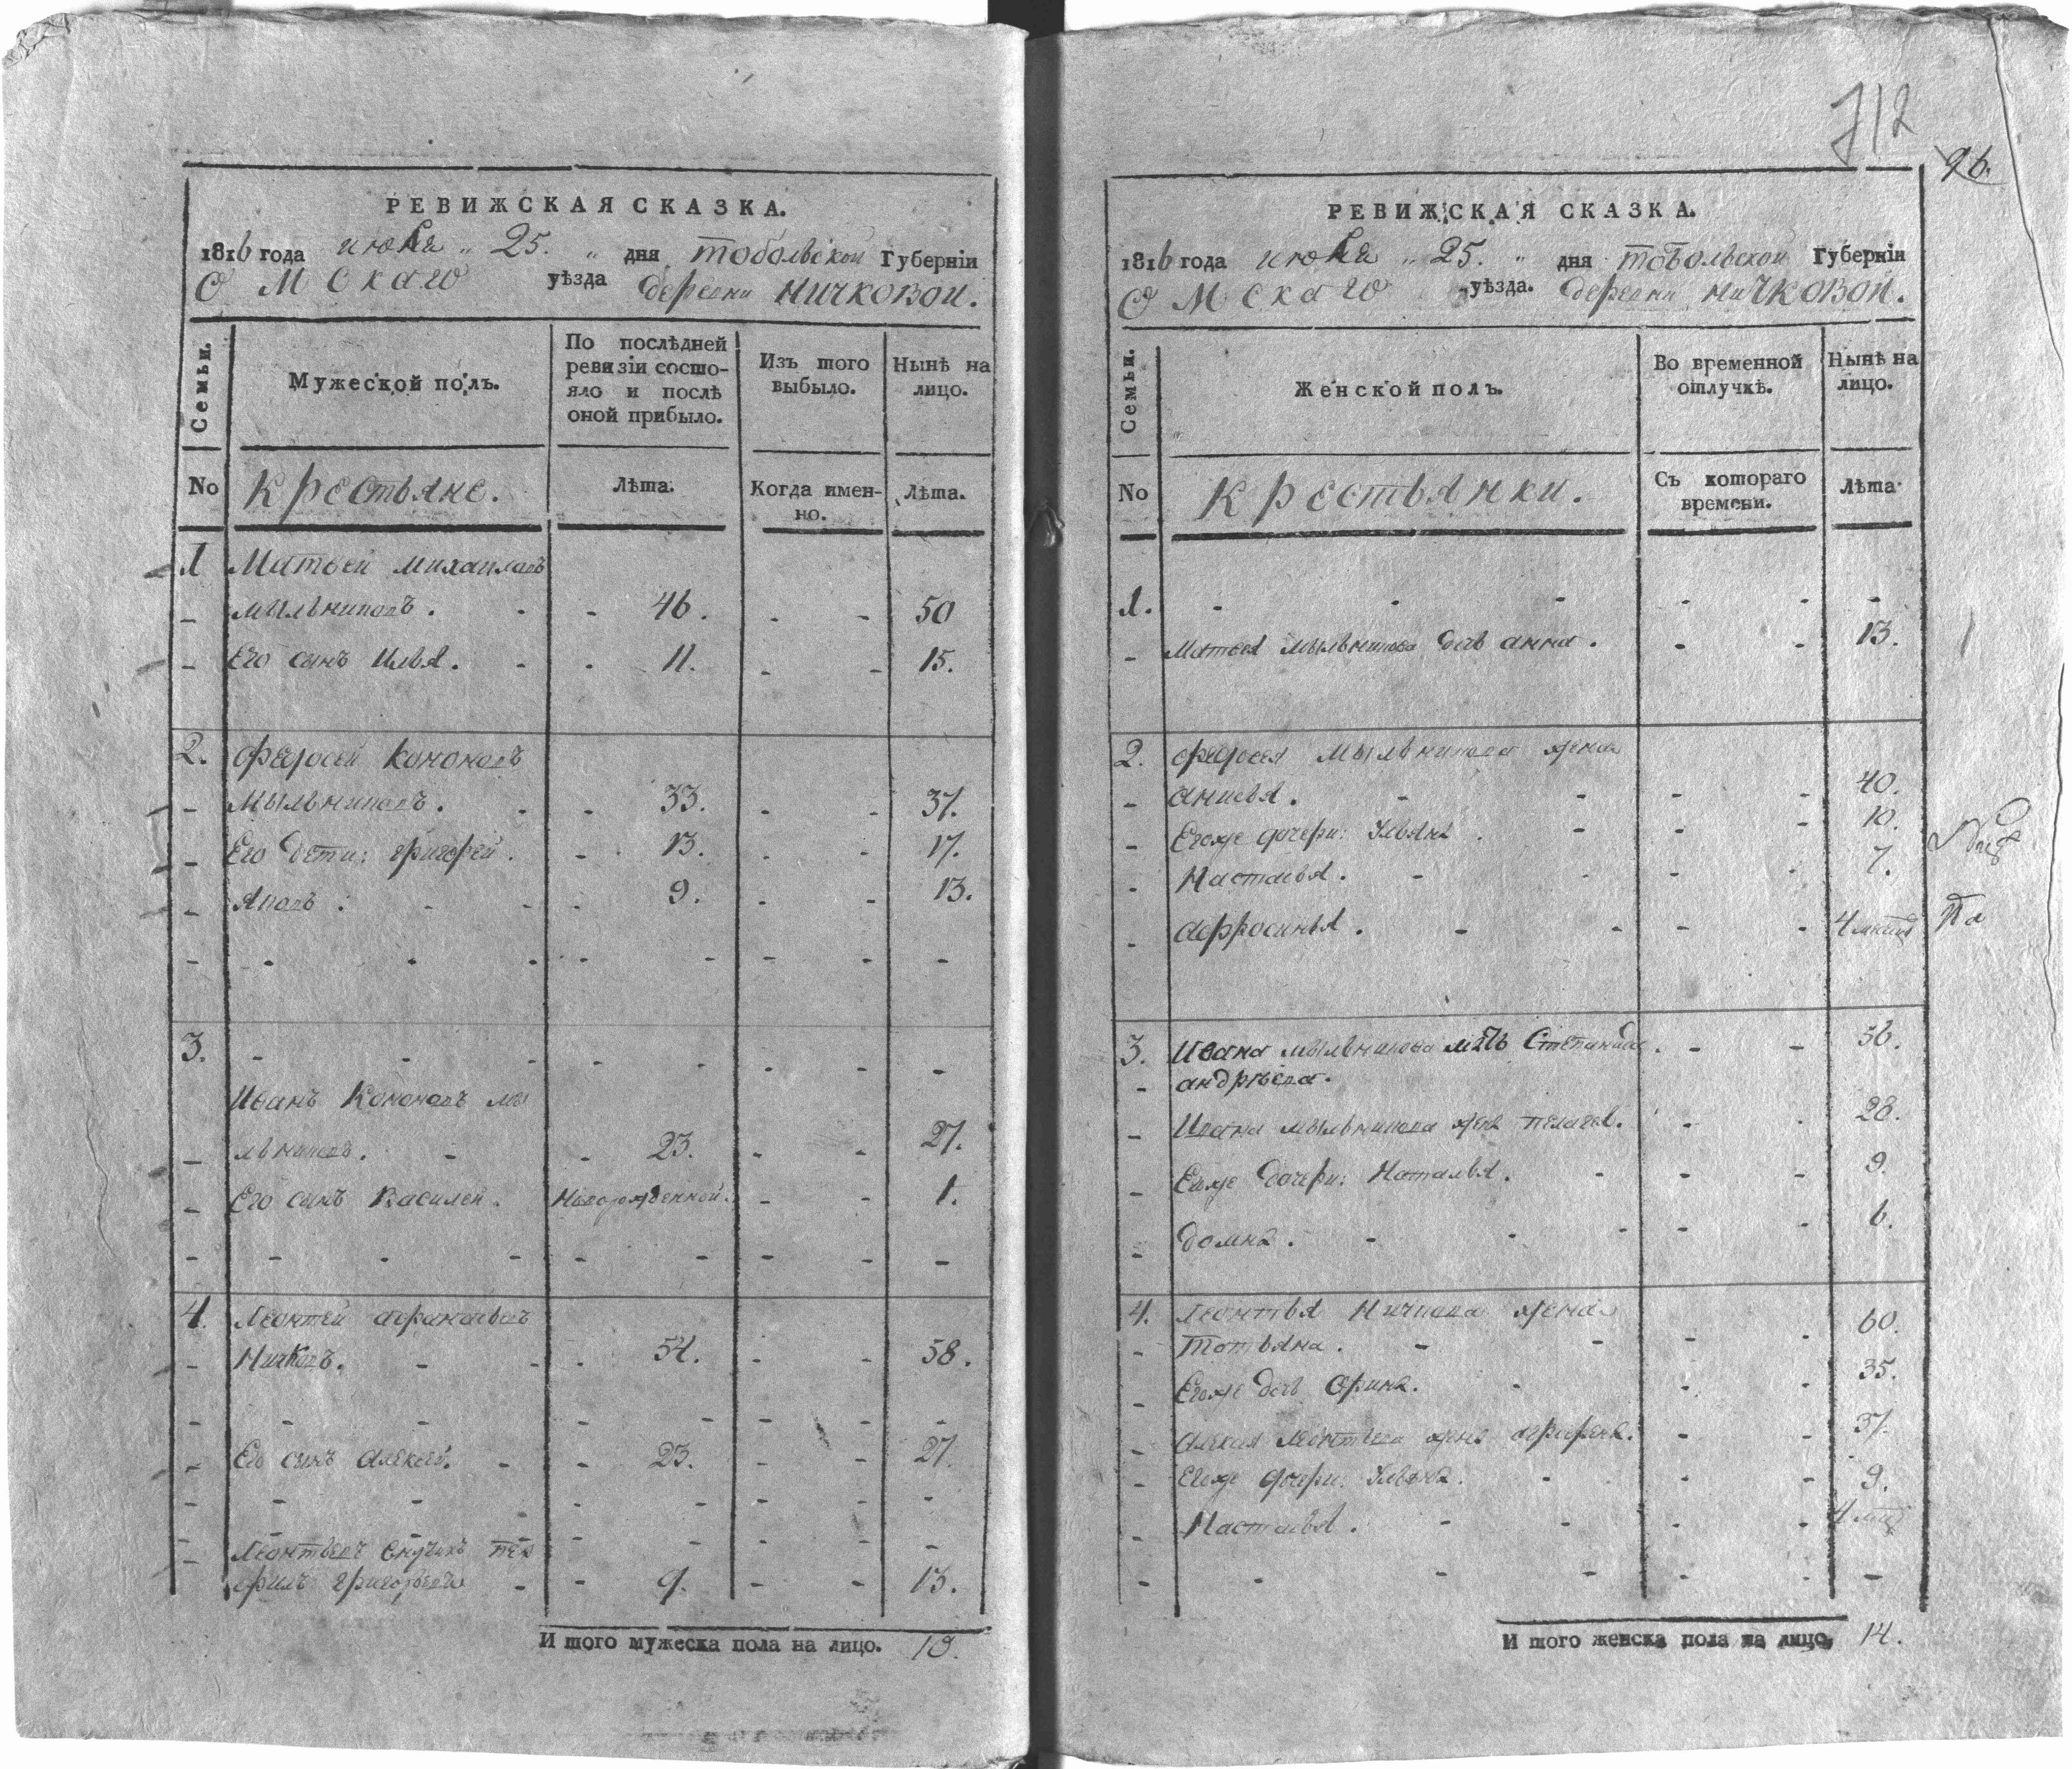 РЕВИЖСКАЯ СКАЗКА.
1816 года июня „ 25. „ дня тобольской Губерніи
Омскаго уѣзда деревни ничковой.
Семьи.
Мужеской полъ.
По послѣдней ревизіи состояло и послѣ оной прибыло.
Изъ того выбыло.
Нынѣ на лицо.
No
Крестьяне.
Лѣта.
Когда именно.
Лѣта.
1 Матвей михаиловъ
мыльниковъ. 46. 50
Его сынъ Илья. 11. 15.
2. Федосей Кононовъ
Мыльниковъ. 33. 37.
Его дети: григорей. 13. 17.
Яковъ. 9. 13.
3.
Иванъ Кононовъ мы
льниковъ. 23. 27.
Его сынъ Василей. Новорожденной. 1.
4. Леонтей афанасьевъ
Ничковъ. 54. 58.
Его сынъ Алексей. 23. 27.
Леонтьевъ внучикъ
григорьевъ 9. 13.
И того мужеска пола на лицо. 10.
712
96.
РЕВИЖСКАЯ СКАЗКА.
1816 года июня „ 25. „ дня тобольской Губерніи
Омскаго уѣзда. деревни ничковой.
Семьи.
Женской полъ.
Во временной отлучкѣ.
Нынѣ на лицо.
No
Крестьянки.
Съ котораго времени.
Лѣта.
1.
Матвея мыльникова дочь анна. 13.
2. Федосея мыльникова жена
анисья. 40.
Егоже дочери: Ульяна. 10.
Настасья. 7.
афросинья. 4
3. Ивана мыльникова мать Степанида 56.
андрѣева.
Ивана мыльникова жена пелагея. 28.
Егоже дочери: Наталья. 9.
домна. 6.
4. Леонтья Ничкова жена
Татьяна. 60.
Егоже дочь Орина. 35.
алексея Леонтьева жена аграфена. 37.
Егоже дочери: Ульяна. 9.
Настасья. 4
И того женска пола на лицо, 14.